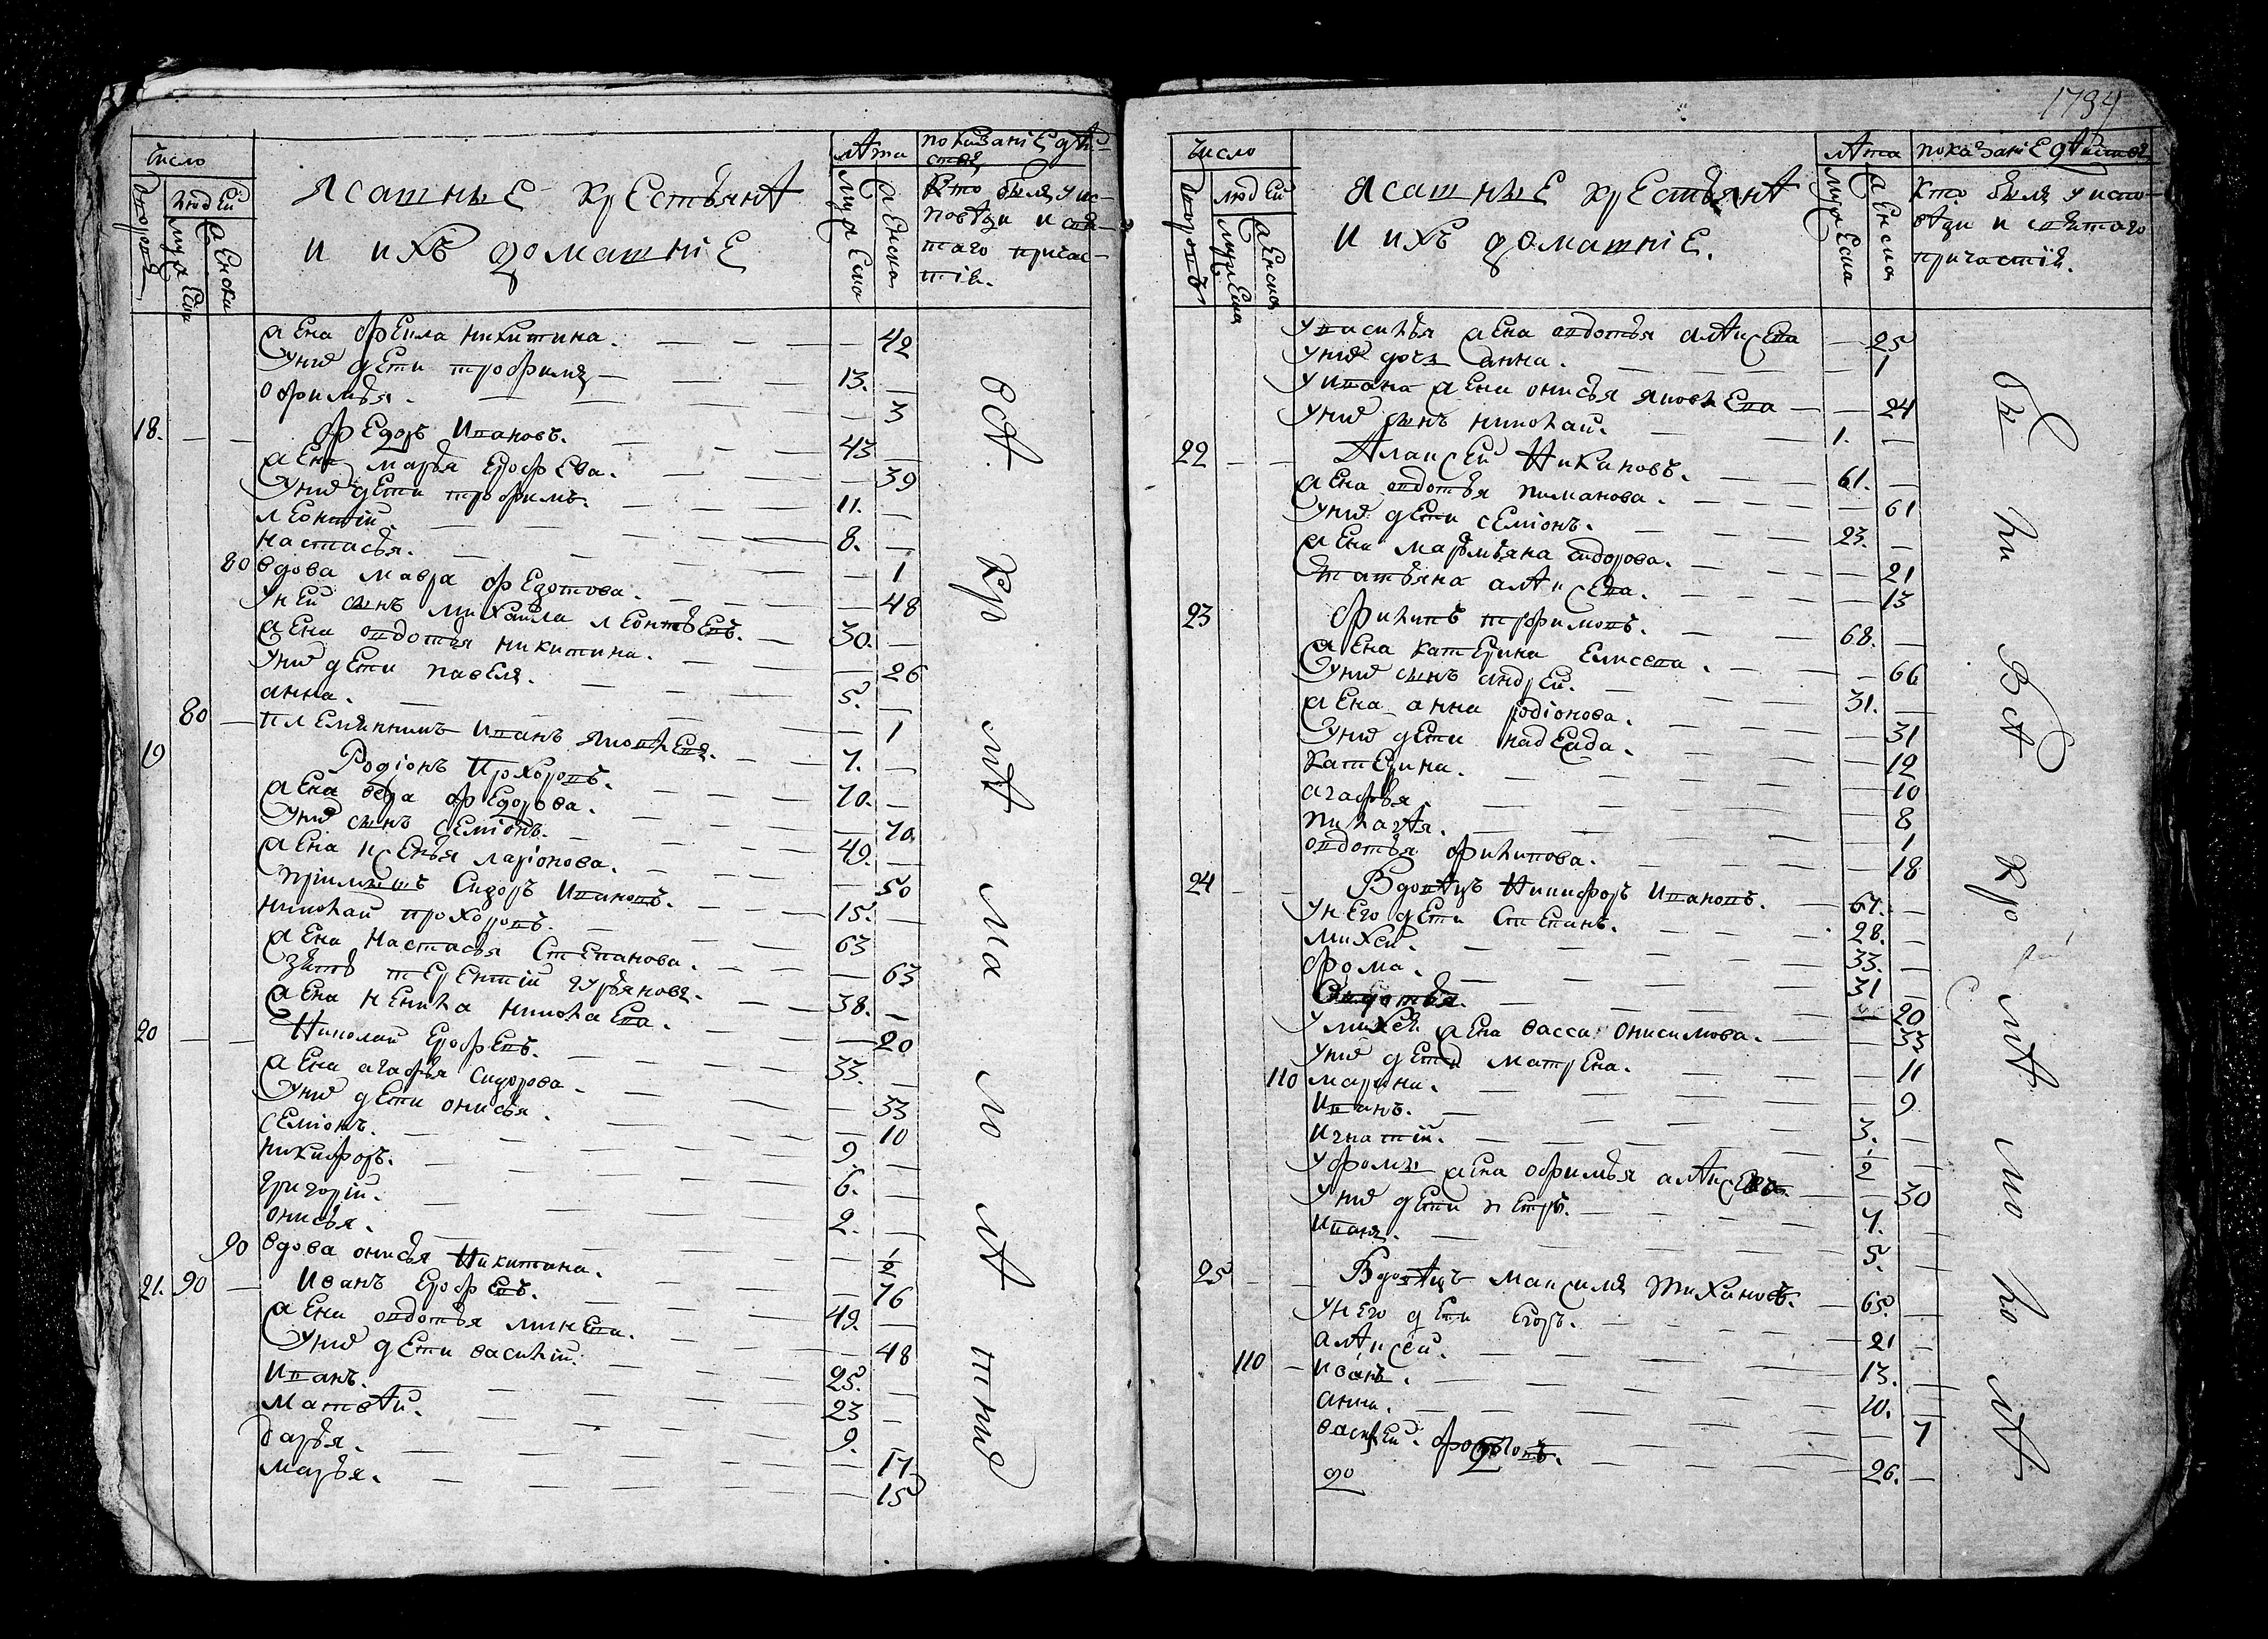 число
людей
дворовъ
мужеск
женски
ясашные крестьянѣ
и ихъ домашніе
лѣта
мужеска
женска
показаніе дѣйства
Кто былъ у исповѣди и святаго причастія.
жена фекла никитина. 42
у нихъ дети трофимъ 13.
офимья. 3
18. федоръ Ивановъ. 43
жена марья ерофева. 39
у нихъ дети трофимъ. 11.
леонтій. 8.
настасья. 1
80 вдова мавра федотова. 48
у ней сынъ михаила леонтьевъ. 30.
жена овдотья никитина. 26
у нихъ дети павелъ. 5.
анна. 1
80 племянникъ Иванъ яковлевъ. 7.
19 Родіонъ Прохоровъ. 70.
жена вера федорова. 70
у нихъ сынъ семіонъ. 49.
жена ксенья ларіонова. 50
пріимышъ Сидоръ Ивановъ. 15.
николай прохоровъ. 63
жена настасья Степанова. 63
зять терентій гурьяновъ. 38.
жена ненила николаева. 20
20 Николай ерофевъ. 33.
жена агафья сидорова. 33
у нихъ дети онисья. 10
семіонъ. 9
никифоръ. 6.
григорій. 2.
онисья. 1/2
90 вдова онисья Никитина. 76
21. 90 Иванъ ерофевъ. 49.
жена овдотья минева. 48
у нихъ дети василій. 25.
Иванъ. 23
матвѣй. 9.
дарья. 17
марья. 15
всѣ кр лѣ ма ло лѣ тныя
1794
число
людей
дворовъ
мужеска
женска
ясашные крестьянѣ
и ихъ домашніе.
лѣта
мужеска
женска
показаніе дѣйства
Кто былъ у исповѣди и святаго причастія.
у василья жена овдотья алѣксева 25
у нихъ дочь анна. 1
у ивана жена онисья яковлева 24
у нихъ сынъ николай. 1.
22 Алаксей Никановъ. 61.
жена овдотья романова. 61
у нихъ дети семіонъ. 23.
жена марьмьяна сидорова. 21
татьяна алѣксева. 13
23 филипъ трофимовъ. 68.
жена катерина елисева. 66
у нихъ сынъ андрей. 31.
жена анна родіонова. 31
у нихъ дети надежда. 12
катерина. 10
агафья. 8
пилагѣя. 1
овдотья филипова. 18
24 Вдовѣцъ Никифоръ Ивановъ. 67.
у него дети Степанъ. 28.
михей. 33.
фома. 31
овдотья. 20
у михея жена васса онисимова. 33
у нихъ дети матрена. 11
110 марина. 9
Иванъ. 3.
Игнатій. 1/2
у фомы жена офимья алѣксева 30
у нихъ дети петръ. 7.
Иванъ. 5.
25 Вдовѣцъ максимъ тихановъ. 65.
у него дети егоръ. 21
алѣксей. 13.
110 Иванъ. 10.
анна. 7
васиѣй. федотовъ. 26.